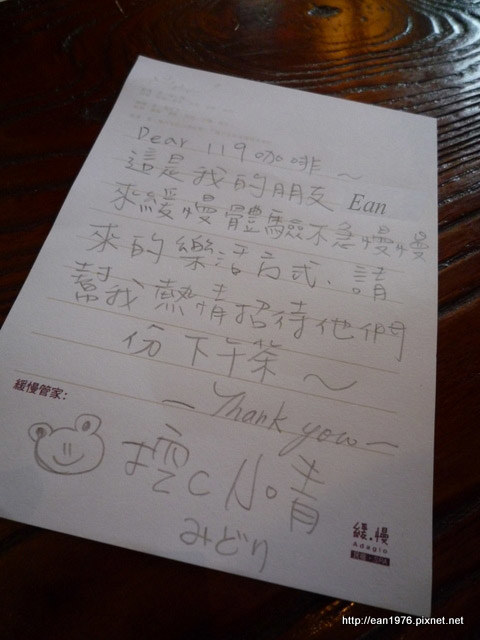 Dear 119咖啡~
這是我的朋友 Ean
來緩慢體驗不急慢慢
來的樂活方式、請
幫我熱情招待他們
份下午茶~
— Thank you —
緩慢管家:
小青
みどり
緩.慢
Adagio
http://ean1976.pixnet.net